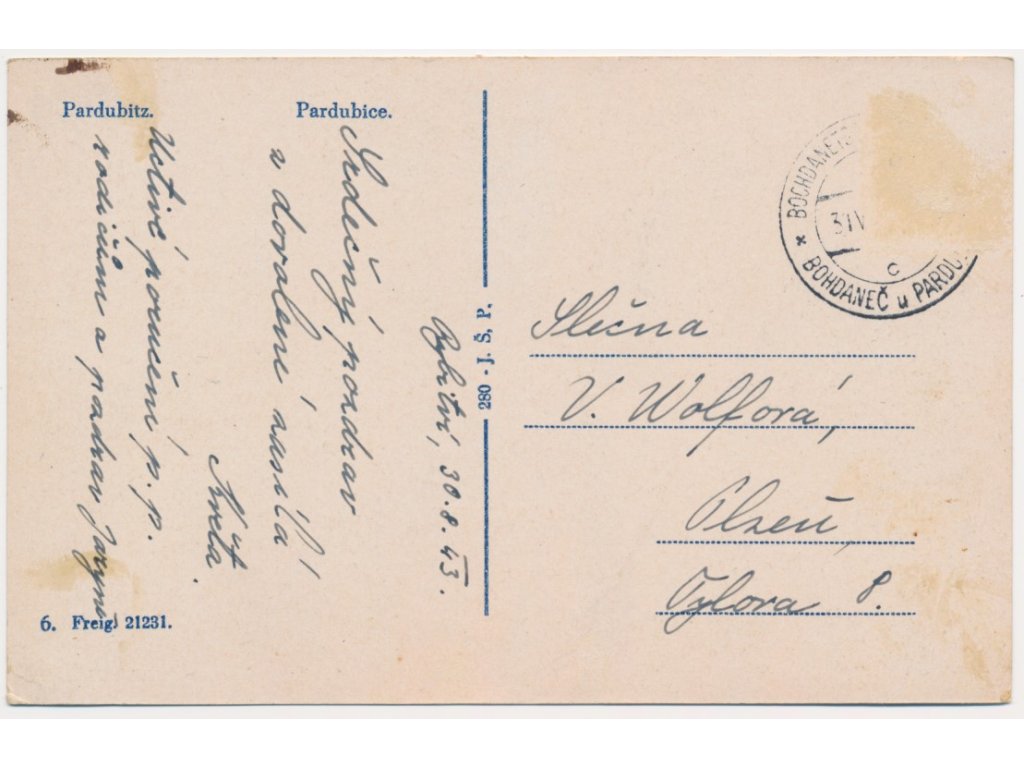 Pardubitz.
Pardubice.
Rybitví, 30.8.43.
Srdečný pozdrav
z dovolené zasílá
Květa.
Uctivé poručení p. p.
rodičům a pozdrav
280 - J. Š. P.
Slečna
V. Wolfová,
Plzeň,
Tylova 8.
6. Freig. 21231.
BOHDANEČ u PARDU
c